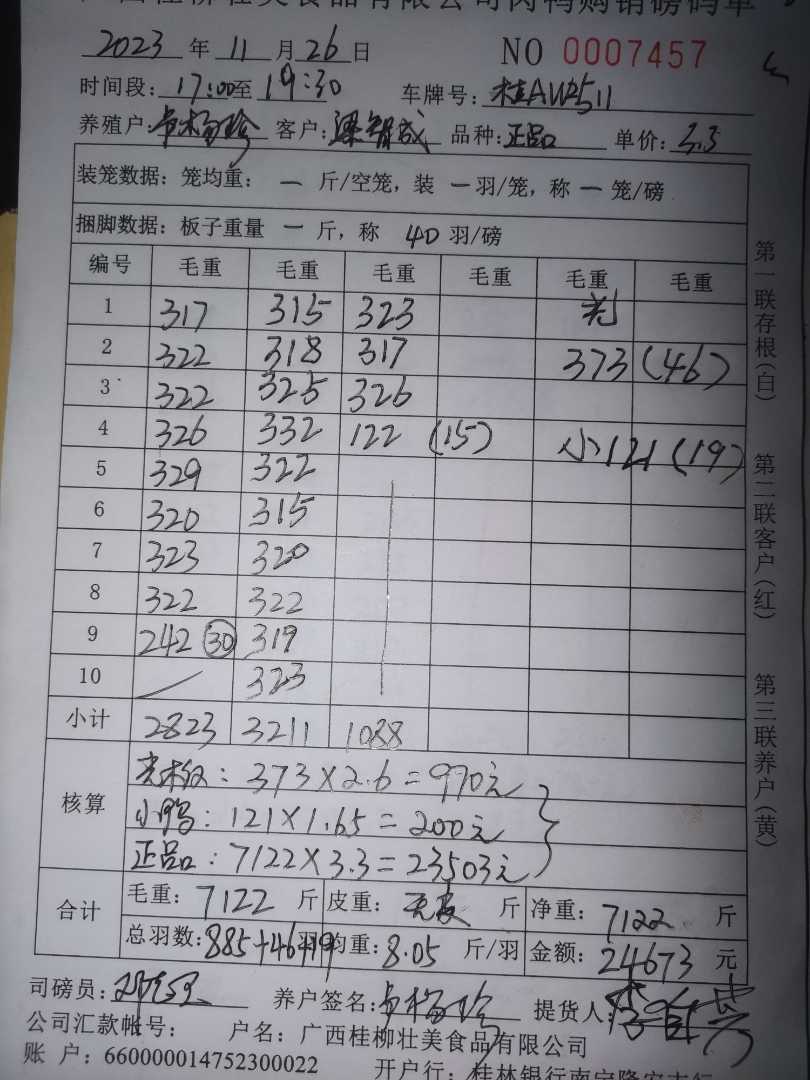 广西桂柳壮美食品有限公司肉鸭购销磅码单
2023 年 11 月 26 日 NO 0007457
时间段: 17:00 至 19:30 车牌号: 桂AW2511
养殖户: 客户: 梁智成 品种: 正品 单价: 3.3
装笼数据: 笼均重: 一 斤/空笼, 装 一 羽/笼, 称 一 笼/磅
捆脚数据: 板子重量 一 斤, 称 40 羽/磅
编号 毛重 毛重 毛重 毛重 毛重 毛重
1 317 315 323
2 322 318 317 373 (46)
3 322 325 326
4 326 332 122 (15) 小 121 (19)
5 329 322
6 320 315
7 323 320
8 322 322
9 242 30 319
10 323
小计 2823 3211 1088
核算
373×2.6=970元
小鸭: 121×1.65=200元
正品: 7122×3.3=23503元
合计 毛重: 7122 斤 皮重: 无皮 斤 净重: 7122 斤
总羽数: 885+46+19 羽 均重: 8.05 斤/羽 金额: 24673 元
司磅员: 养户签名: 提货人:
公司汇款帐号: 户名: 广西桂柳壮美食品有限公司
账 户: 660000014752300022 开户行: 桂林银行南宁隆安支行
第一联存根(白)
第二联客户(红)
第三联养户(黄)